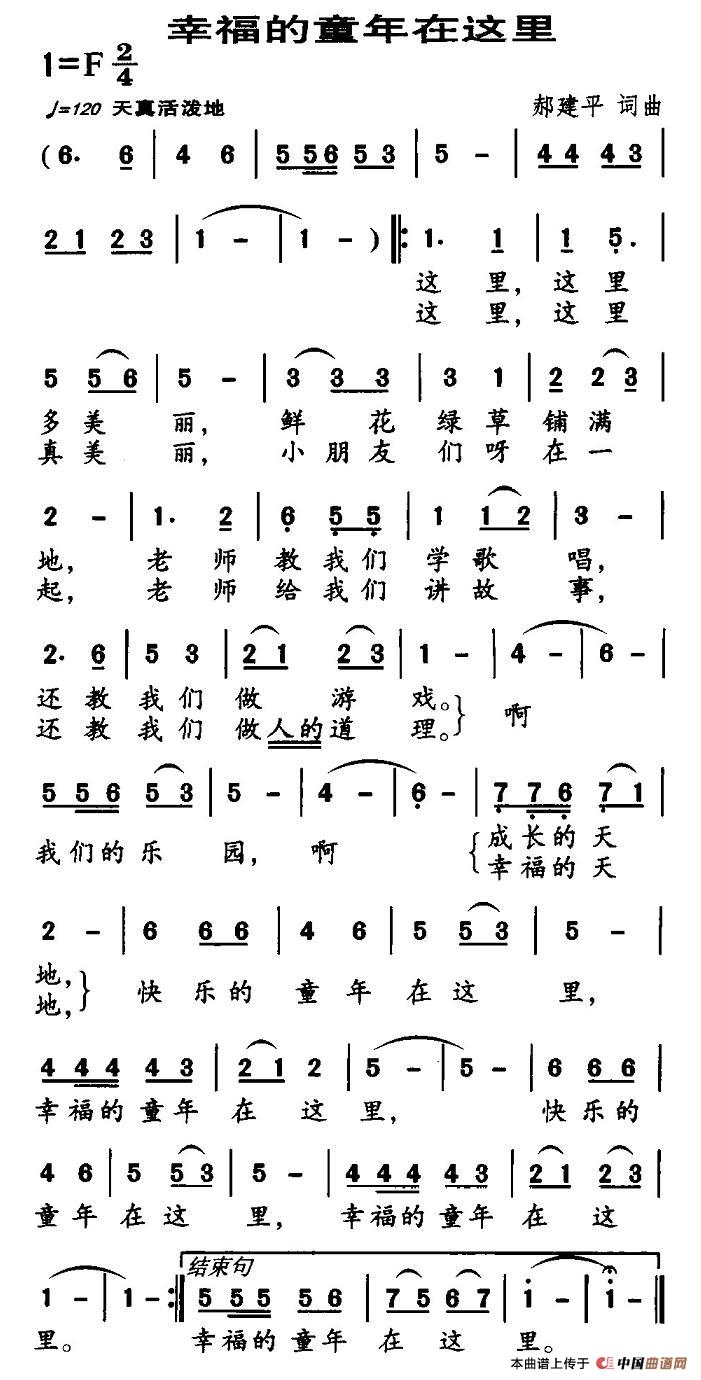 幸福的童年在这里
1=F 2/4
♩=120 天真活泼地
郝建平 词曲
(6. 6 | 4 6 | 5 56 5 3 | 5 - | 4 4 4 3 |
2 1 2 3 | 1 - | 1 - ) ‖: 1. 1 | 1 5. |
这 里, 这里
这 里, 这里
5 5 6 | 5 - | 3 3 3 | 3 1 | 2 2 3 |
多美 丽, 鲜 花 绿草铺满
真美 丽, 小朋友 们呀在一
2 - | 1. 2 | 6 5 5 | 1 1 2 | 3 - |
地, 老 师 教我们 学歌 唱,
起, 老 师 给我们 讲故 事,
2. 6 | 5 3 | 2 1 2 3 | 1 - | 4 - | 6 - |
还教我们 做 游 戏。 啊
还教我们 做人的道 理。
5 56 5 3 | 5 - | 4 - | 6 - | 7 76 7 1 |
我们的乐 园, 啊 成长的天
幸福的天
2 - | 6 6 6 | 4 6 | 5 5 3 | 5 - |
地, 快乐的 童年在这 里,
地,
4 44 4 3 | 2 1 2 | 5 - | 5 - | 6 6 6 |
幸福的童年 在 这 里, 快乐的
4 6 | 5 5 3 | 5 - | 4 44 4 3 | 2 1 2 3 |
童年在这 里, 幸福的童年 在 这
结束句
1 - | 1 - :‖ 5 55 5 6 | 7 5 6 7 | 1 - | 1 - ‖
里。 幸福的童年 在 这 里。
本曲谱上传于 中国曲谱网